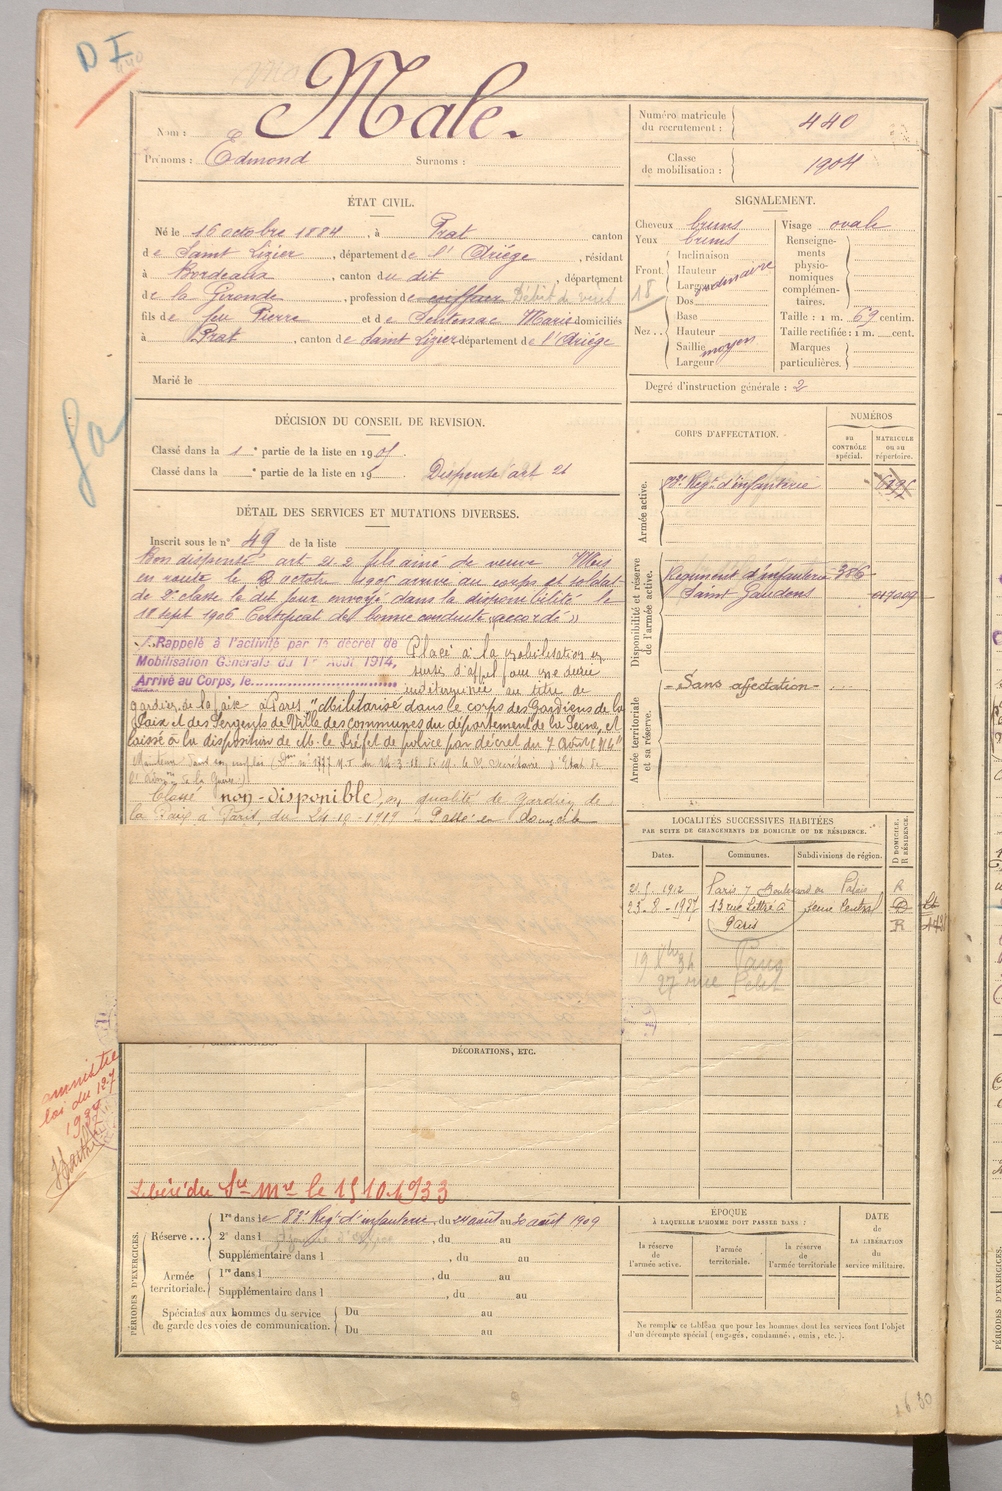 D I
Male.
Nom :
Prénoms : Edmond Surnoms :
Numéro matricule du recrutement : 440
Classe de mobilisation : 1904
ÉTAT CIVIL.
Né le 16 octobre 1884, à Prat canton
de Saint Lizier, département de l'Ariège, résidant
à Bordeaux, canton du dit département
de la Gironde, profession de coiffeur Débit de vins
fils de feu Pierre et de Sentenac Marie domiciliés
à Prat, canton de Saint Lizier département de l'Ariège
Marié le
SIGNALEMENT.
Cheveux bruns
Yeux bruns
Front
Inclinaison
Hauteur
Largeur ordinaire
Nez
Dos
Base
Hauteur
Saillie moyen
Largeur
Visage ovale
Renseignements physionomiques complémentaires.
Taille : 1 m. 69 centim.
Taille rectifiée : 1 m. cent.
Marques particulières.
Degré d'instruction générale : 2
DÉCISION DU CONSEIL DE REVISION.
Classé dans la 1 e partie de la liste en 1905.
Classé dans la e partie de la liste en 19 Dispensé art 21
DÉTAIL DES SERVICES ET MUTATIONS DIVERSES.
Inscrit sous le n° 49 de la liste
Bon dispensé art 21.2 fils ainé de veuve Mis
en route le octobre 1905 arrivé au corps et soldat
de 2e classe le dit jour envoyé dans la disponibilité le
18 sept 1906 Certificat de bonne conduite "accordé"
Rappelé à l'activité par le décret de
Mobilisation Générale du 1er Août 1914,
Arrivé au Corps, le
Placé à la mobilisation en
sursis d'appel pour une durée
indéterminée au titre de
gardien de la paix à Paris "Militarisé dans le corps des Gardiens de la
Paix et des Sergents de Ville des communes du département de la Seine, et
laissé à la disposition de M. le Préfet de police par décret du 7 Août 1914"
Maintenu dans son emploi
Classé non-disponible en qualité de gardien de
la Paix à Paris, du 24-10-1919 Passé en domicile
CORPS D'AFFECTATION.
NUMÉROS
au CONTRÔLE spécial.
MATRICULE ou au répertoire.
Armée active.
Regt d'infanterie
Disponibilité et réserve de l'armée active.
Régiment d'infanterie 386
Saint Gaudens 017009
Armée territoriale et sa réserve.
- Sans affectation -
LOCALITÉS SUCCESSIVES HABITÉES
PAR SUITE DE CHANGEMENTS DE DOMICILE OU DE RÉSIDENCE.
Dates. Communes. Subdivisions de région. D DOMICILE. R RÉSIDENCE.
1912 Paris 7 Boulevard du Palais R
23-8-1927 13 rue Littré à Seine Central D
Paris R
19 34 Paris
27 rue Petit
amnistie
loi du 12-7
1937
DÉCORATIONS, ETC.
Libéré du Sce Mre le 15 10 1933
PÉRIODES D'EXERCICES.
Réserve...
1re dans le 83e Regt d'infanterie, du 24 août au 30 août 1909
2e dans l , du au
Supplémentaire dans l , du au
Armée territoriale.
1re dans l , du au
Supplémentaire dans l , du au
Spéciales aux hommes du service de garde des voies de communication.
Du au
Du au
ÉPOQUE
À LAQUELLE L'HOMME DOIT PASSER DANS :
la réserve de l'armée active.
l'armée territoriale.
la réserve de l'armée territoriale
DATE de LA LIBÉRATION du service militaire.
Ne remplir ce tableau que pour les hommes dont les services font l'objet
d'un décompte spécial (engagés, condamnés, omis, etc.).